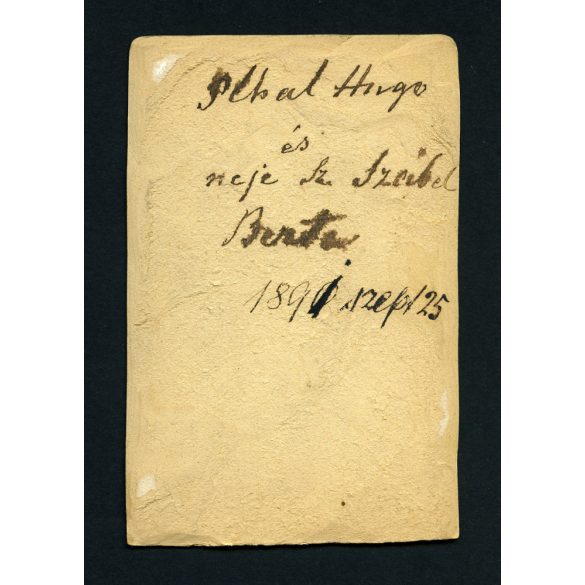 Plhal Hugo
és
neje Sz. Szeibel
Berta
1891 szept 25